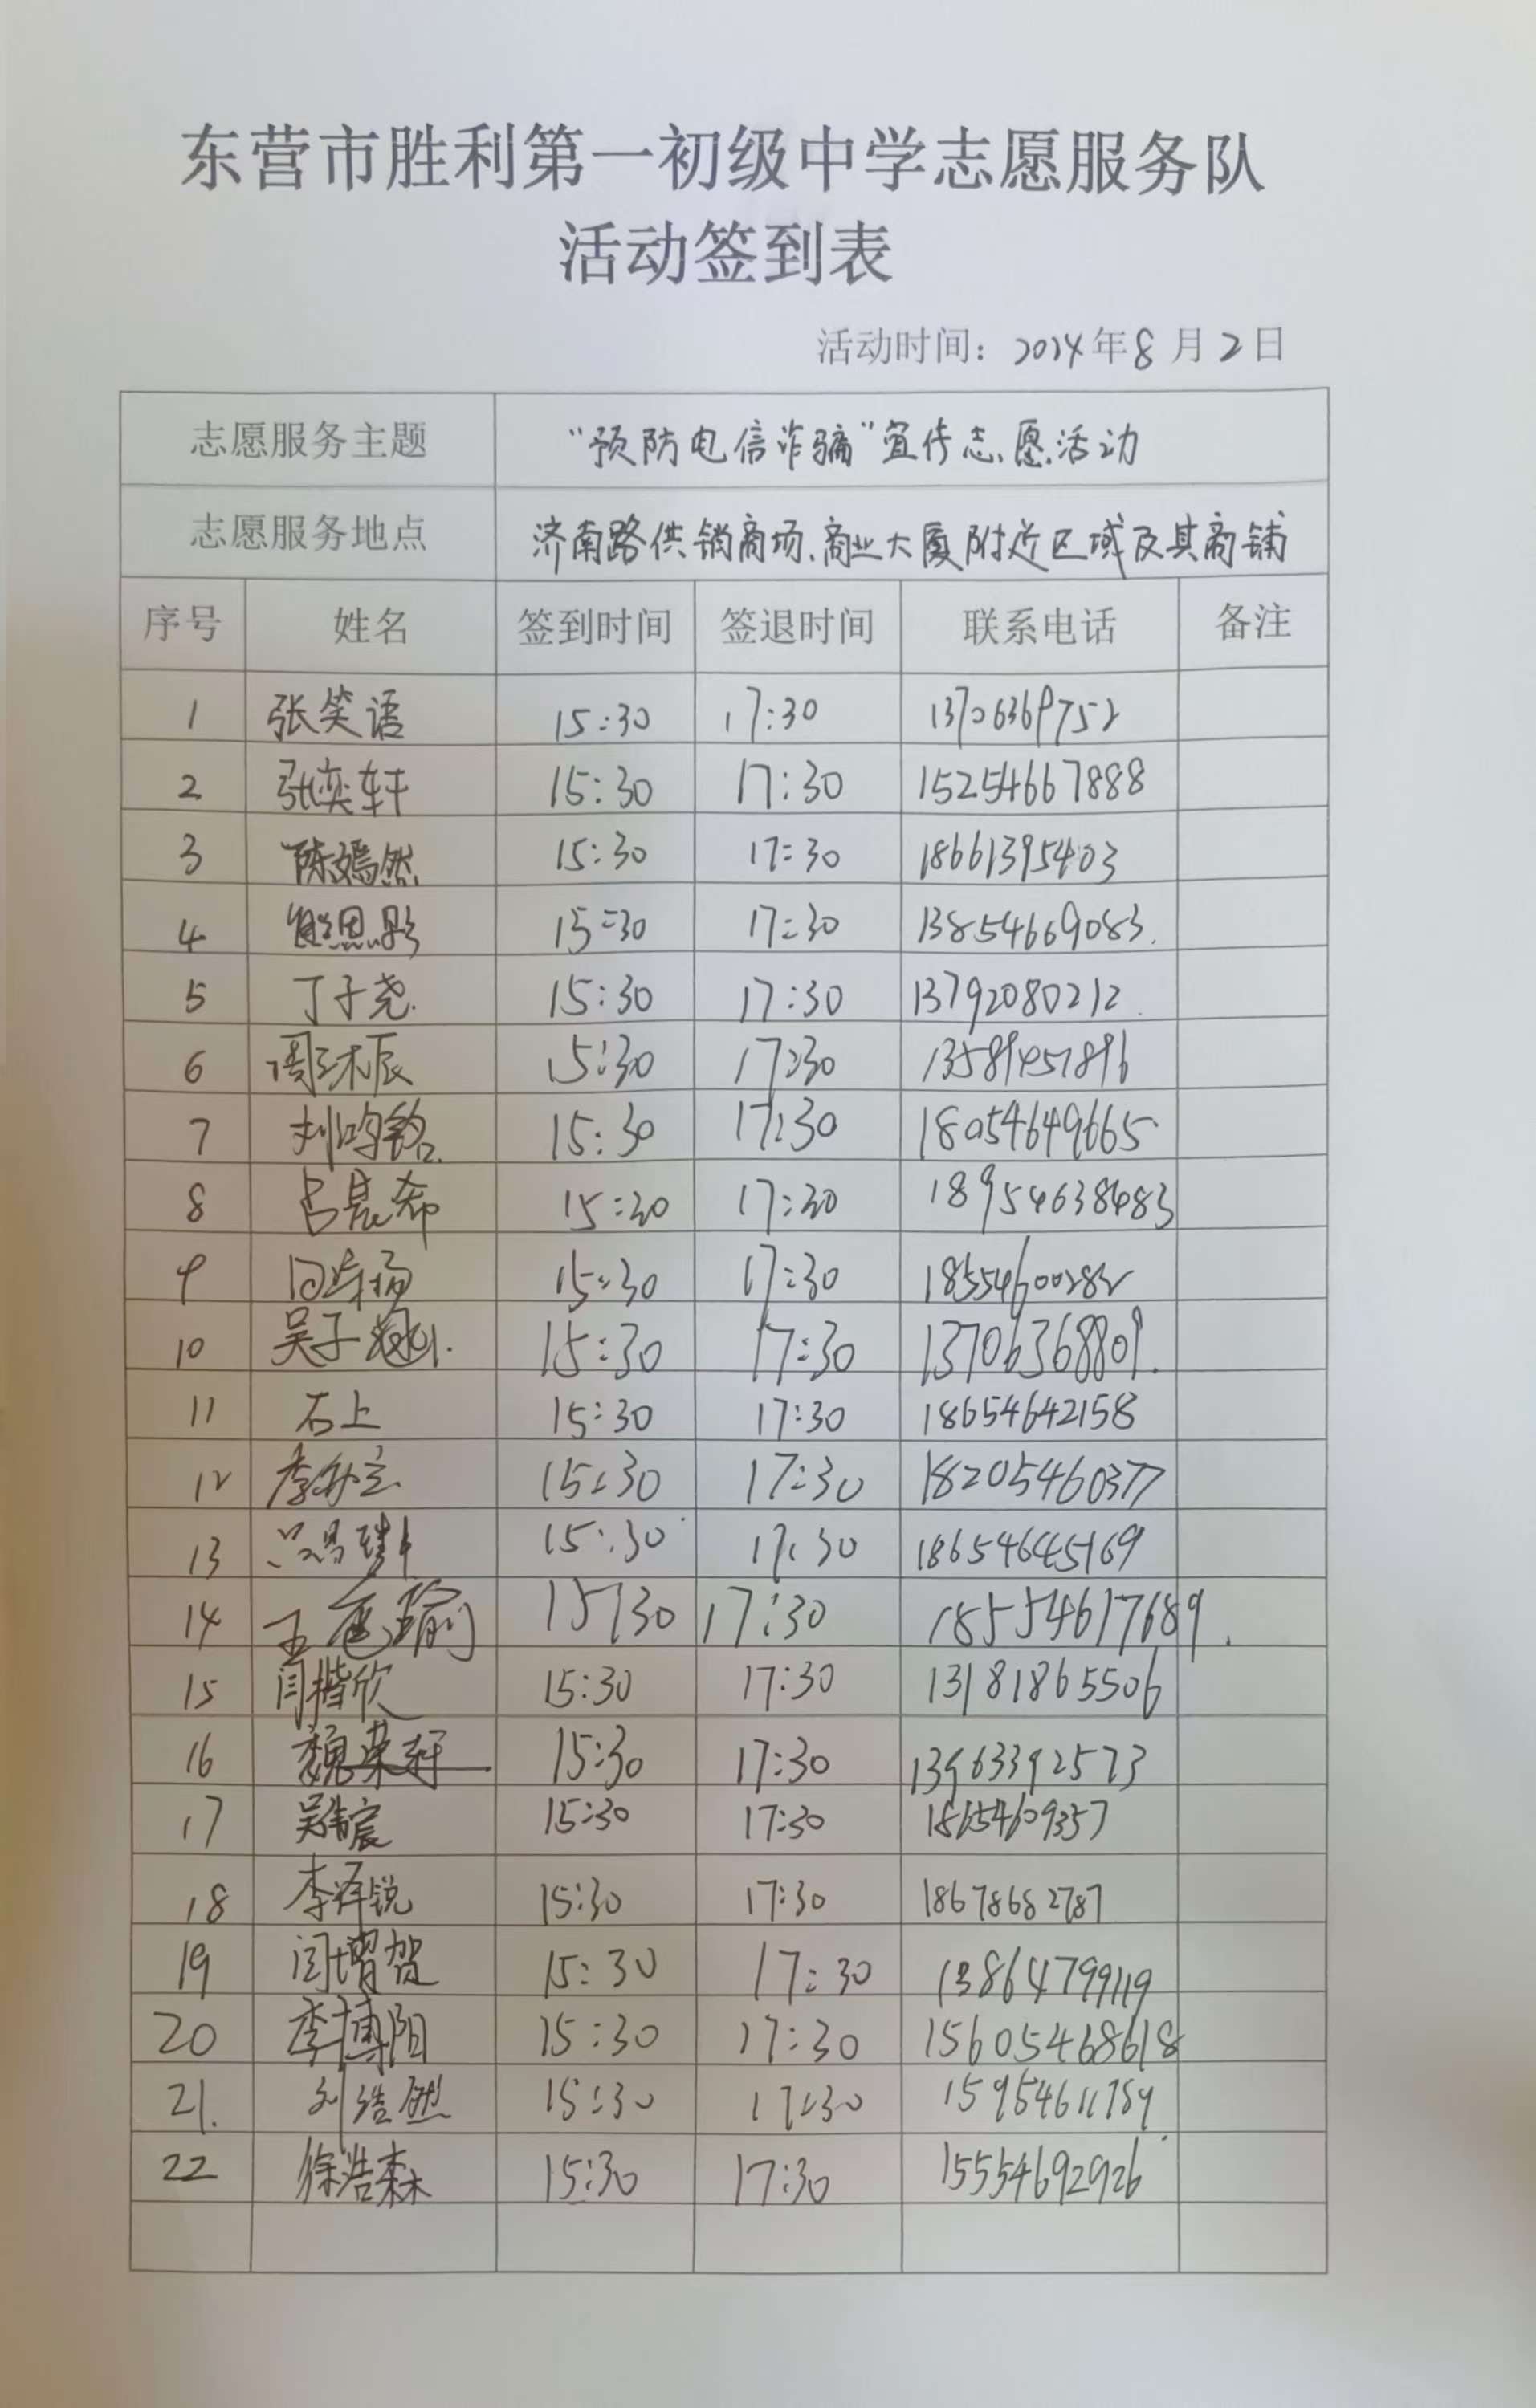 东营市胜利第一初级中学志愿服务队
活动签到表
活动时间：2024年8月2日
志愿服务主题 “预防电信诈骗”宣传志愿活动
志愿服务地点 济南路供销商场、商业大厦附近区域及其商铺
序号 姓名 签到时间 签退时间 联系电话 备注
1 张笑语 15:30 17:30 13706369752
2 张奕轩 15:30 17:30 15254667888
3 陈嫣然 15:30 17:30 18661395403
4 15:30 17:30 13854669083
5 丁子尧 15:30 17:30 13792080212
6 15:30 17:30 13589457896
7 15:30 17:30 18054649665
8 吕晨希 15:30 17:30 18954638483
9 15:30 17:30 18554600282
10 吴子 15:30 17:30 13706368809
11 石上 15:30 17:30 18654642158
12 15:30 17:30 18205460377
13 15:30 17:30 18654645169
14 15:30 17:30 18554617689
15 闫楷欣 15:30 17:30 13181865506
16 魏荣轩 15:30 17:30 13963392573
17 15:30 17:30 18654609357
18 李泽锐 15:30 17:30 18678682787
19 闫增贺 15:30 17:30 13864799119
20 李博阳 15:30 17:30 15605468618
21. 刘浩然 15:30 17:30 15954611759
22 徐浩森 15:30 17:30 15554692926